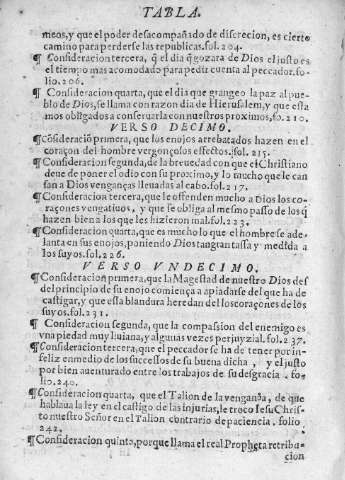 TABLA.
meos, y que el poder desacompañado de discrecion, es cierto
camino para perderse las republicas. fol. 204.
¶ Consideracion tercera, q̃ el dia q̃ gozara de Dios el justo es
el tiempo mas acomodado para pedir cuenta al peccador. fo-
lio. 206.
¶ Consideracion quarta, que el dia que grangeo la paz al pue-
blo de Dios, se llama con razon dia de Hierusalem, y que esta
mos obligados a conseruarla con nuestros proximos, fo. 210.
VERSO DECIMO.
¶ Cõsideraciõ primera, que los enojos arrebatados hazen en el
coraçon del hombre vergonçosos effectos. fol. 215.
¶ Consideracion segunda, de la breuedad con que el Christiano
deue de poner el odio con su proximo, y lo mucho que le can
san a Dios venganças lleuadas al cabo. fol. 217.
¶ Consideracion tercera, que le offenden mucho a Dios los co-
raçones vengatiuos, y que se obliga al mesmo passo de los q̃
hazen bien a los que les hizieron mal. 223.
¶ Consideracion quarta, que es mucho lo que el hombre se ade-
lanta en sus enojos, poniendo Dios tangran tassa y medida a
los suyos. fol. 226.
VERSO VNDECIMO.
¶ Consideracion primera, que la Magestad de nuestro Dios des
del principio de su enojo comiença a apiadarse del que ha de
castigar, y que esta blandura heredan del los coraçones de los
suyos. fol. 231.
¶ Consideracion segunda, que la compassion del enemigo es
vna piedad muy liuiana, y algunas vezes perjuyzial. fol. 237.
¶ Consideracion tercera, que el peccador se ha de tener por in-
feliz en medio de los successos de su buena dicha, y el justo
por bien auenturado entre los trabajos de su desgracia. fo-
lio. 240.
¶ Consideracion quarta, que el Talion de la vengança, de que
hablaua la ley en el castigo de las injurias, le troco Iesu Chris-
to nuestro Señor en el Talion contrario de paciencia. folio
242.
¶ Consideracion quinta, porque llama el real Propheta retriba-
cion